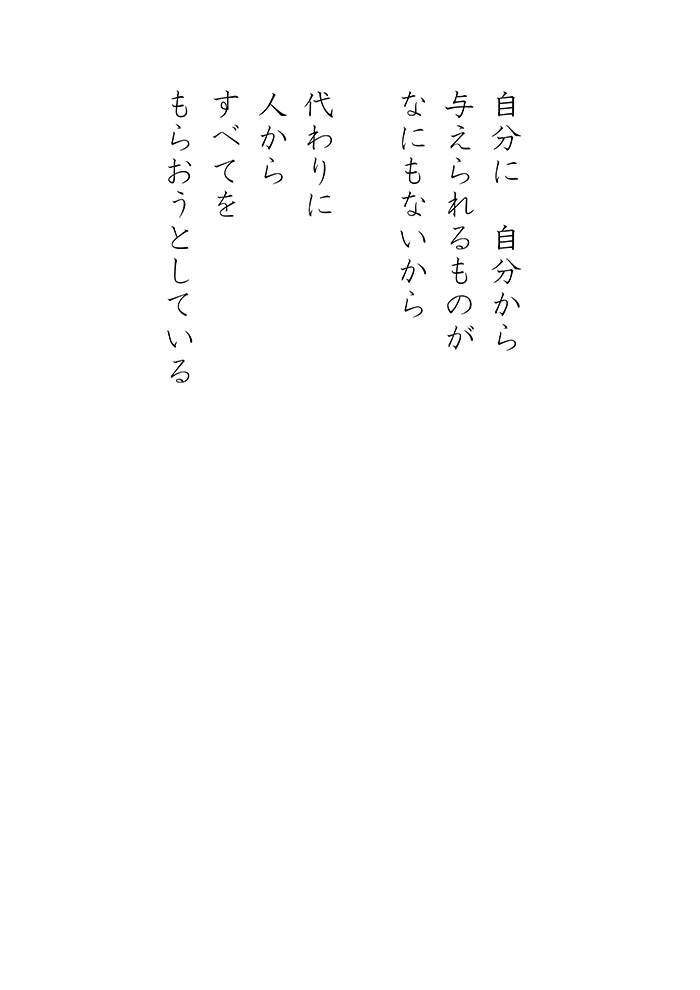 自分に　自分から
与えられるものが
なにもないから
代わりに
人から
すべてを
もらおうとしている